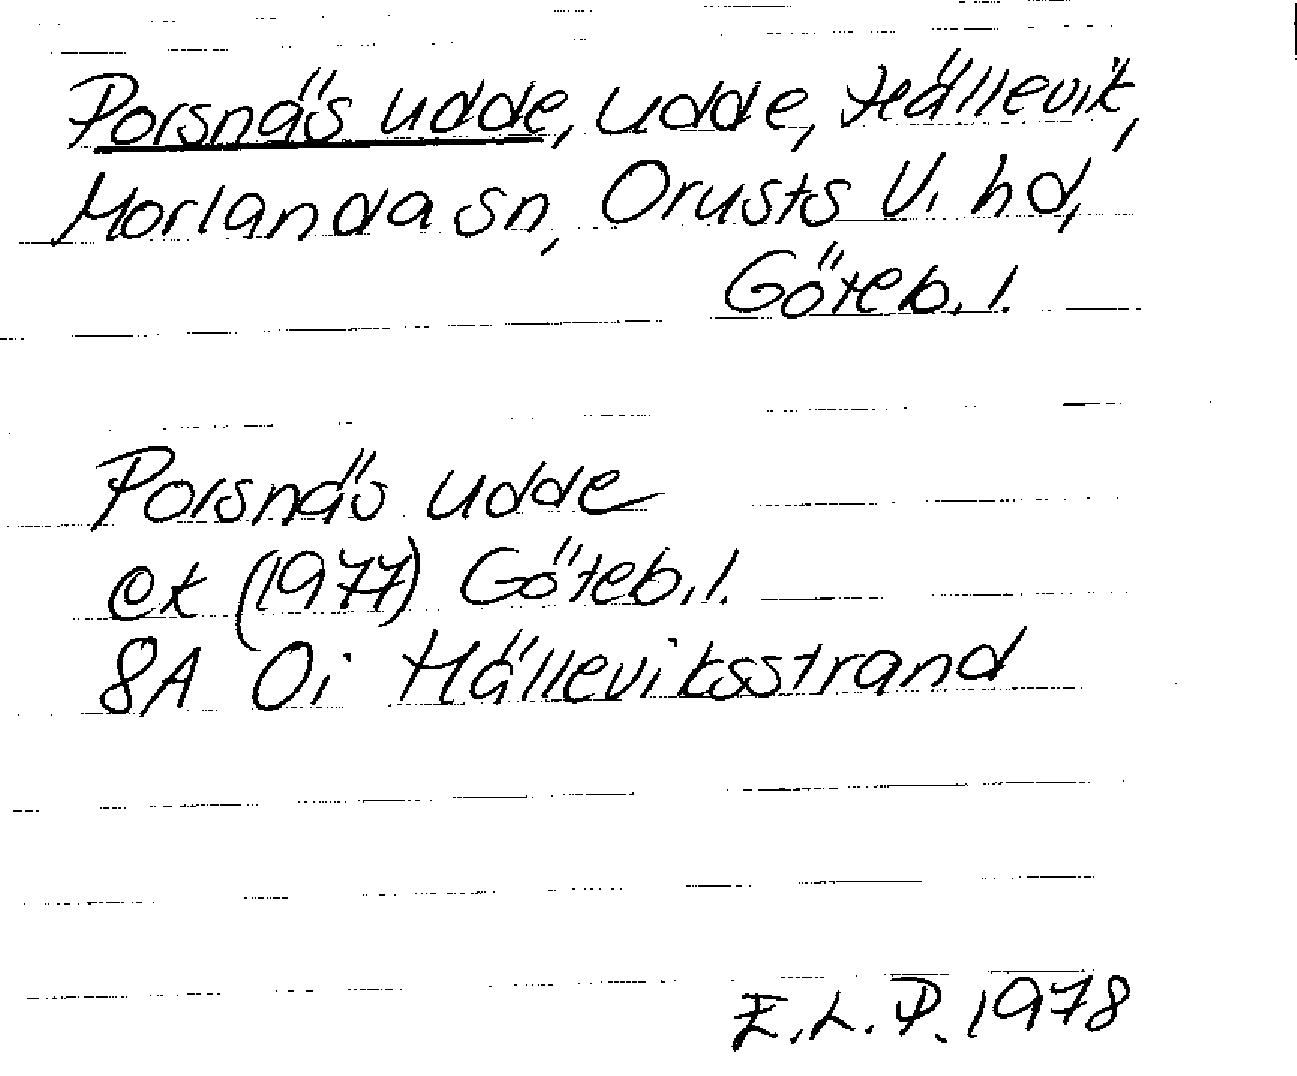 Porsnäs udde, udde, Hällevik,
Morlanda sn, Orusts V. hd,
Göteb. l.
Porsnäs udde
ek (1977) Göteb. l.
8A 0i Hälleviksstrand
E.L.P. 1978